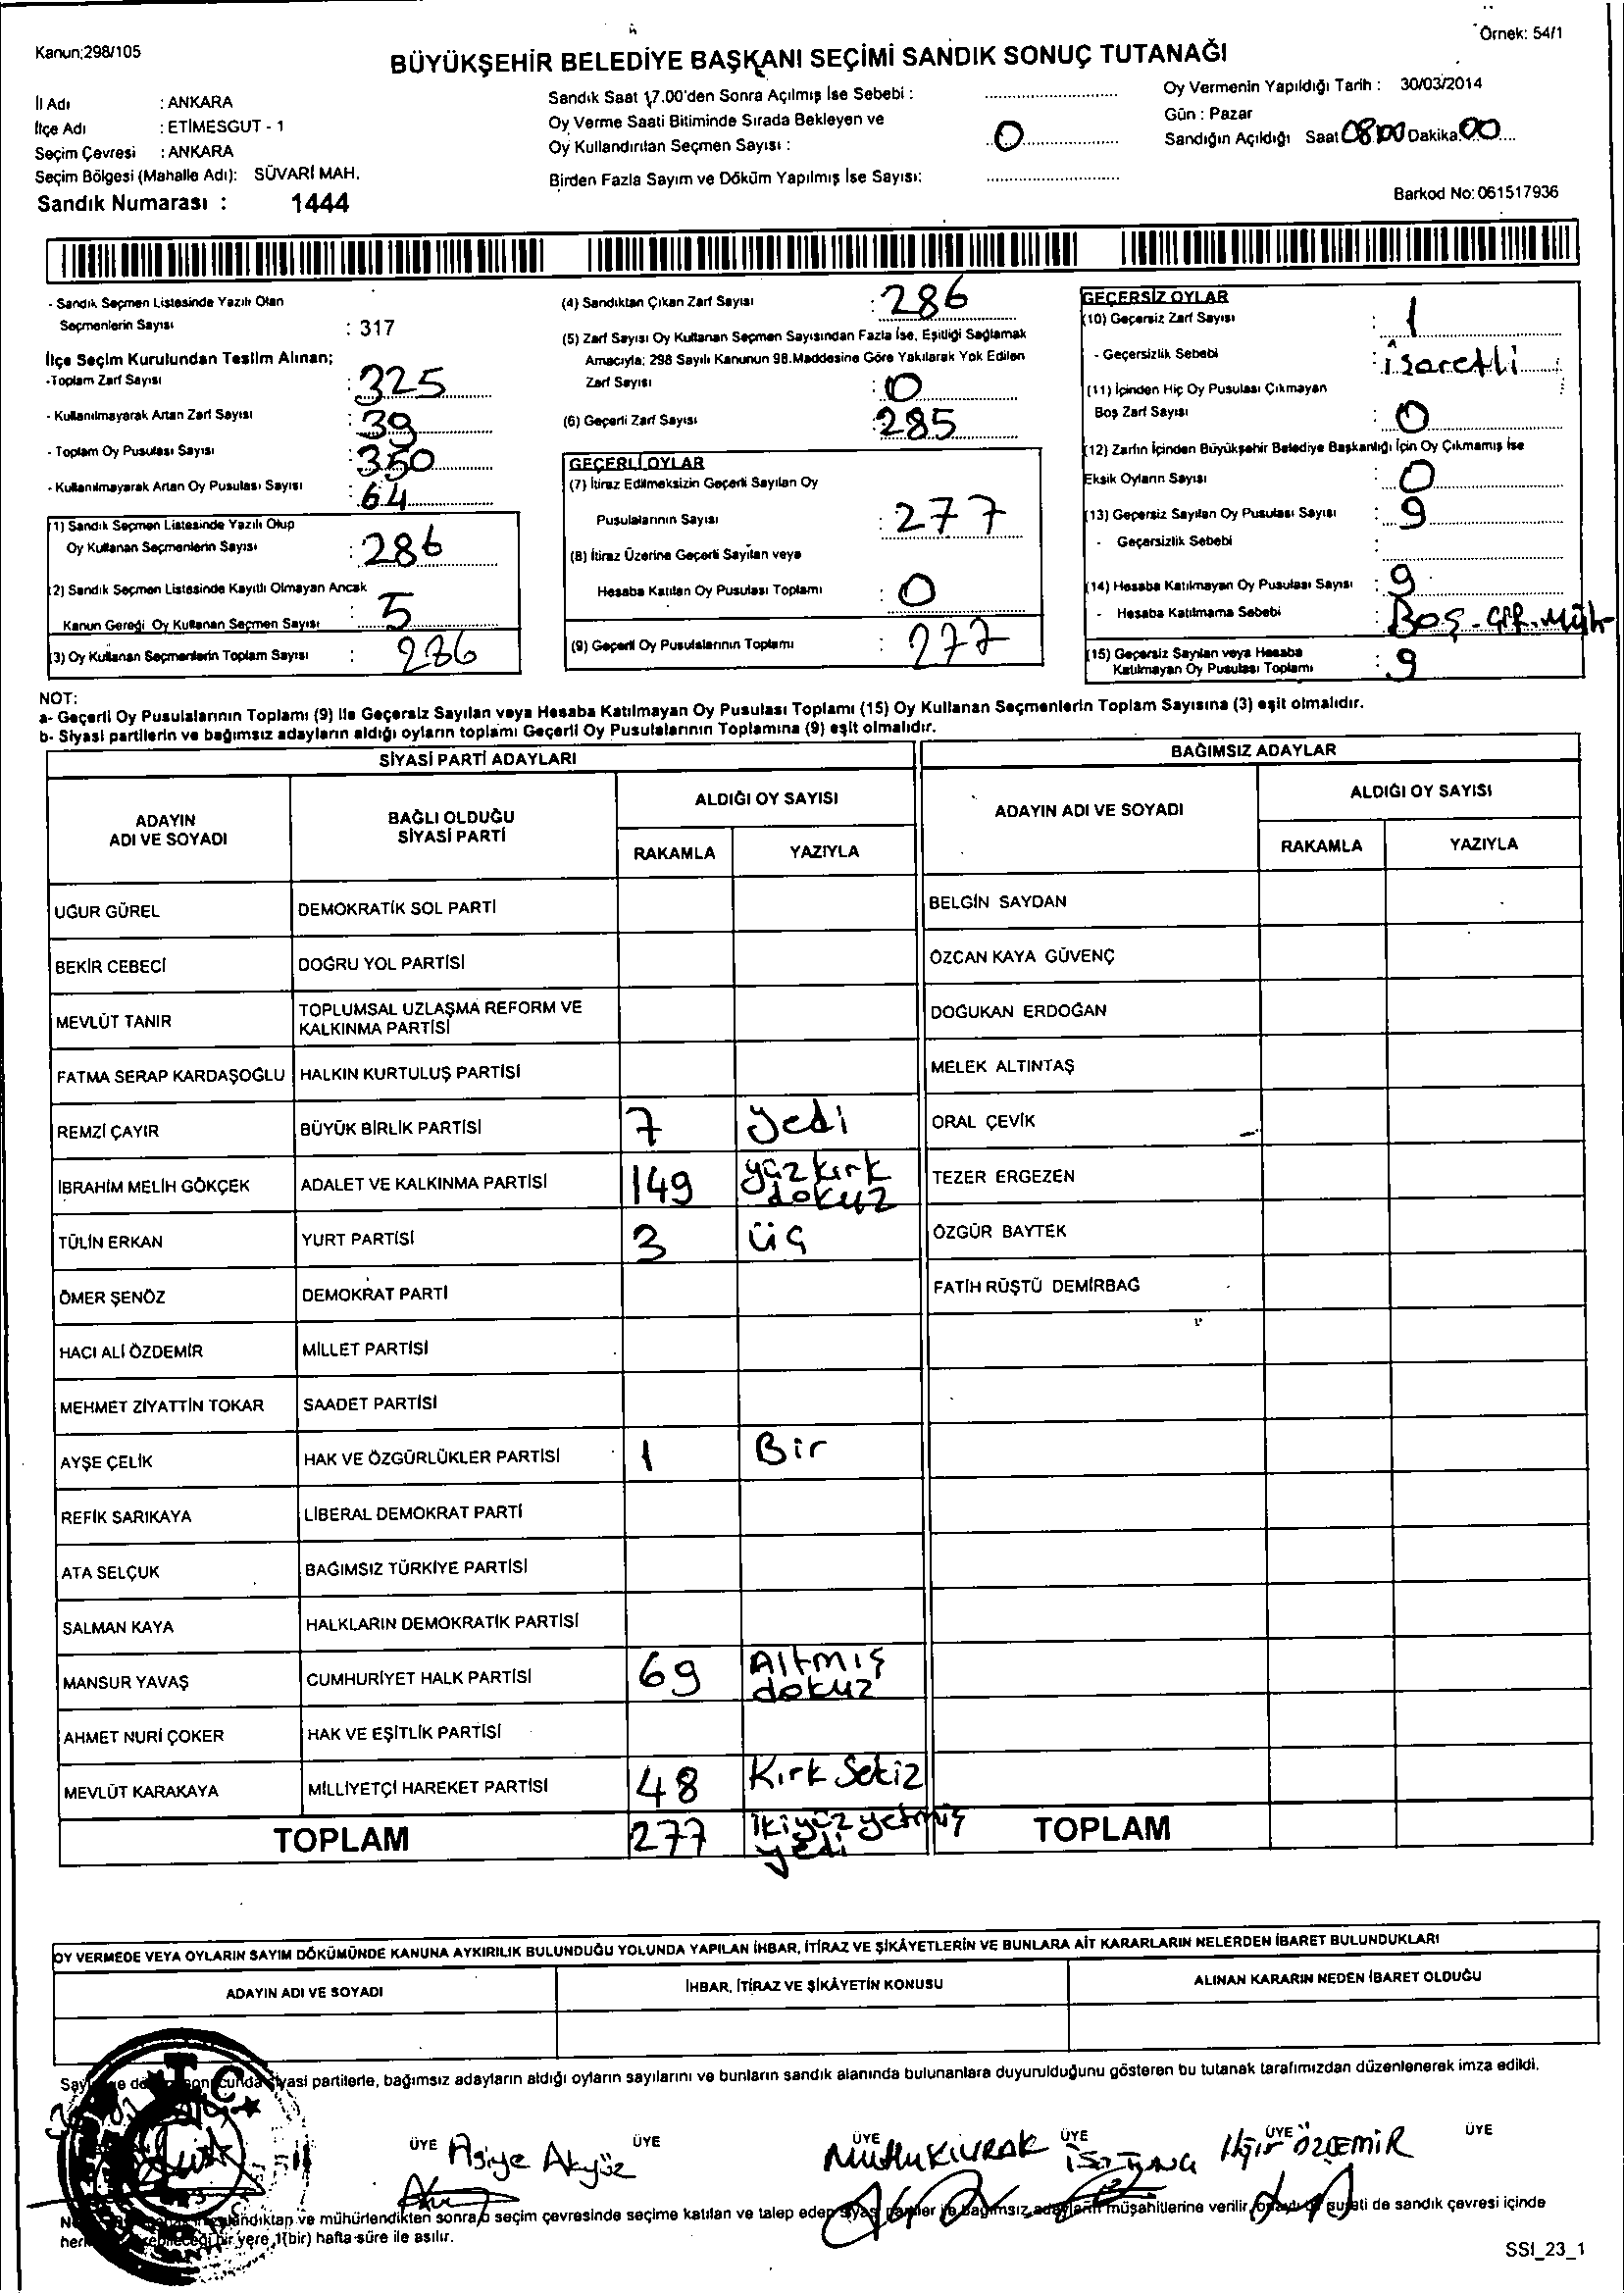 Örnek: 54/1
Kanun;298/105
BÜYÜKŞEHİR BELEDİYE BAŞKANI SEÇİMİ SANDIK SONUÇ TUTANAĞI
İl Adı : ANKARA
İlçe Adı : ETİMESGUT - 1
Seçim Çevresi : ANKARA
Seçim Bölgesi (Mahalle Adı): SÜVARİ MAH.
Sandık Numarası : 1444
Sandık Saat 17.00'den Sonra Açılmış İse Sebebi :
Oy Verme Saati Bitiminde Sırada Bekleyen ve
Oy Kullandırılan Seçmen Sayısı : 0
Birden Fazla Sayım ve Döküm Yapılmış İse Sayısı:
Oy Vermenin Yapıldığı Tarih : 30/03/2014
Gün : Pazar
Sandığın Açıldığı Saat 08:00 Dakika 00
Barkod No: 061517936
- Sandık Seçmen Listesinde Yazılı Olan
Seçmenlerin Sayısı : 317
İlçe Seçim Kurulundan Teslim Alınan;
-Toplam Zarf Sayısı : 325
- Kullanılmayarak Artan Zarf Sayısı : 39
- Toplam Oy Pusulası Sayısı : 350
- Kullanılmayarak Artan Oy Pusulası Sayısı : 64
(1) Sandık Seçmen Listesinde Yazılı Olup
Oy Kullanan Seçmenlerin Sayısı : 286
(2) Sandık Seçmen Listesinde Kayıtlı Olmayan Ancak
Kanun Gereği Oy Kullanan Seçmen Sayısı : 5
(3) Oy Kullanan Seçmenlerin Toplam Sayısı : 286
(4) Sandıktan Çıkan Zarf Sayısı : 286
(5) Zarf Sayısı Oy Kullanan Seçmen Sayısından Fazla İse, Eşitliği Sağlamak
Amacıyla; 298 Sayılı Kanunun 98.Maddesine Göre Yakılarak Yok Edilen
Zarf Sayısı : 0
(6) Geçerli Zarf Sayısı : 285
GEÇERLİ OYLAR
(7) İtiraz Edilmeksizin Geçerli Sayılan Oy
Pusulalarının Sayısı : 277
(8) İtiraz Üzerine Geçerli Sayılan veya
Hesaba Katılan Oy Pusulası Toplamı : 0
(9) Geçerli Oy Pusulalarının Toplamı : 277
GEÇERSİZ OYLAR
(10) Geçersiz Zarf Sayısı : 1
- Geçersizlik Sebebi : işaretli
(11) İçinden Hiç Oy Pusulası Çıkmayan
Boş Zarf Sayısı : 0
(12) Zarfın İçinden Büyükşehir Belediye Başkanlığı İçin Oy Çıkmamış İse
Eksik Oyların Sayısı : 0
(13) Geçersiz Sayılan Oy Pusulası Sayısı : 9
- Geçersizlik Sebebi :
(14) Hesaba Katılmayan Oy Pusulası Sayısı : 9
- Hesaba Katılmama Sebebi : Boş - Çif. Müh
(15) Geçersiz Sayılan veya Hesaba
Katılmayan Oy Pusulası Toplamı : 9
NOT:
a- Geçerli Oy Pusulalarının Toplamı (9) İle Geçersiz Sayılan veya Hesaba Katılmayan Oy Pusulası Toplamı (15) Oy Kullanan Seçmenlerin Toplam Sayısına (3) eşit olmalıdır.
b- Siyasi partilerin ve bağımsız adayların aldığı oyların toplamı Geçerli Oy Pusulalarının Toplamına (9) eşit olmalıdır.
SİYASİ PARTİ ADAYLARI BAĞIMSIZ ADAYLAR
ADAYIN ADI VE SOYADI BAĞLI OLDUĞU SİYASİ PARTİ ALDIĞI OY SAYISI ADAYIN ADI VE SOYADI ALDIĞI OY SAYISI
RAKAMLA YAZIYLA RAKAMLA YAZIYLA
UĞUR GÜREL DEMOKRATİK SOL PARTİ BELGİN SAYDAN
BEKİR CEBECİ DOĞRU YOL PARTİSİ ÖZCAN KAYA GÜVENÇ
MEVLÜT TANIR TOPLUMSAL UZLAŞMA REFORM VE KALKINMA PARTİSİ DOĞUKAN ERDOĞAN
FATMA SERAP KARDAŞOĞLU HALKIN KURTULUŞ PARTİSİ MELEK ALTINTAŞ
REMZİ ÇAYIR BÜYÜK BİRLİK PARTİSİ 7 yedi ORAL ÇEVİK
İBRAHİM MELİH GÖKÇEK ADALET VE KALKINMA PARTİSİ 149 yüz kırk dokuz TEZER ERGEZEN
TÜLİN ERKAN YURT PARTİSİ 3 üç ÖZGÜR BAYTEK
ÖMER ŞENÖZ DEMOKRAT PARTİ FATİH RÜŞTÜ DEMİRBAĞ
HACI ALİ ÖZDEMİR MİLLET PARTİSİ
MEHMET ZİYATTİN TOKAR SAADET PARTİSİ
AYŞE ÇELİK HAK VE ÖZGÜRLÜKLER PARTİSİ 1 Bir
REFİK SARIKAYA LİBERAL DEMOKRAT PARTİ
ATA SELÇUK BAĞIMSIZ TÜRKİYE PARTİSİ
SALMAN KAYA HALKLARIN DEMOKRATİK PARTİSİ
MANSUR YAVAŞ CUMHURİYET HALK PARTİSİ 69 Altmış dokuz
AHMET NURİ ÇOKER HAK VE EŞİTLİK PARTİSİ
MEVLÜT KARAKAYA MİLLİYETÇİ HAREKET PARTİSİ 48 Kırk Sekiz
TOPLAM 277 ikiyüz yetmiş yedi TOPLAM
OY VERMEDE VEYA OYLARIN SAYIM DÖKÜMÜNDE KANUNA AYKIRILIK BULUNDUĞU YOLUNDA YAPILAN İHBAR, İTİRAZ VE ŞİKÂYETLERİN VE BUNLARA AİT KARARLARIN NELERDEN İBARET BULUNDUKLARI
ADAYIN ADI VE SOYADI İHBAR, İTİRAZ VE ŞİKÂYETİN KONUSU ALINAN KARARIN NEDEN İBARET OLDUĞU
siyasi partilerle, bağımsız adayların aldığı oyların sayılarını ve bunların sandık alanında bulunanlara duyurulduğunu gösteren bu tutanak tarafımızdan düzenlenerek imza edildi.
T.C.
ÜYE Asiye Akyüz ÜYE ÜYE Mutlu KIVRAK ÜYE ÜYE ÖZDEMİR ÜYE
ve mühürlendikten sonra o seçim çevresinde seçime katılan ve talep eden siyasi partiler ile bağımsız adayların müşahitlerine verilir, onaylı bir sureti de sandık çevresi içinde
bir yere 1(bir) hafta süre ile asılır.
SSI_23_1